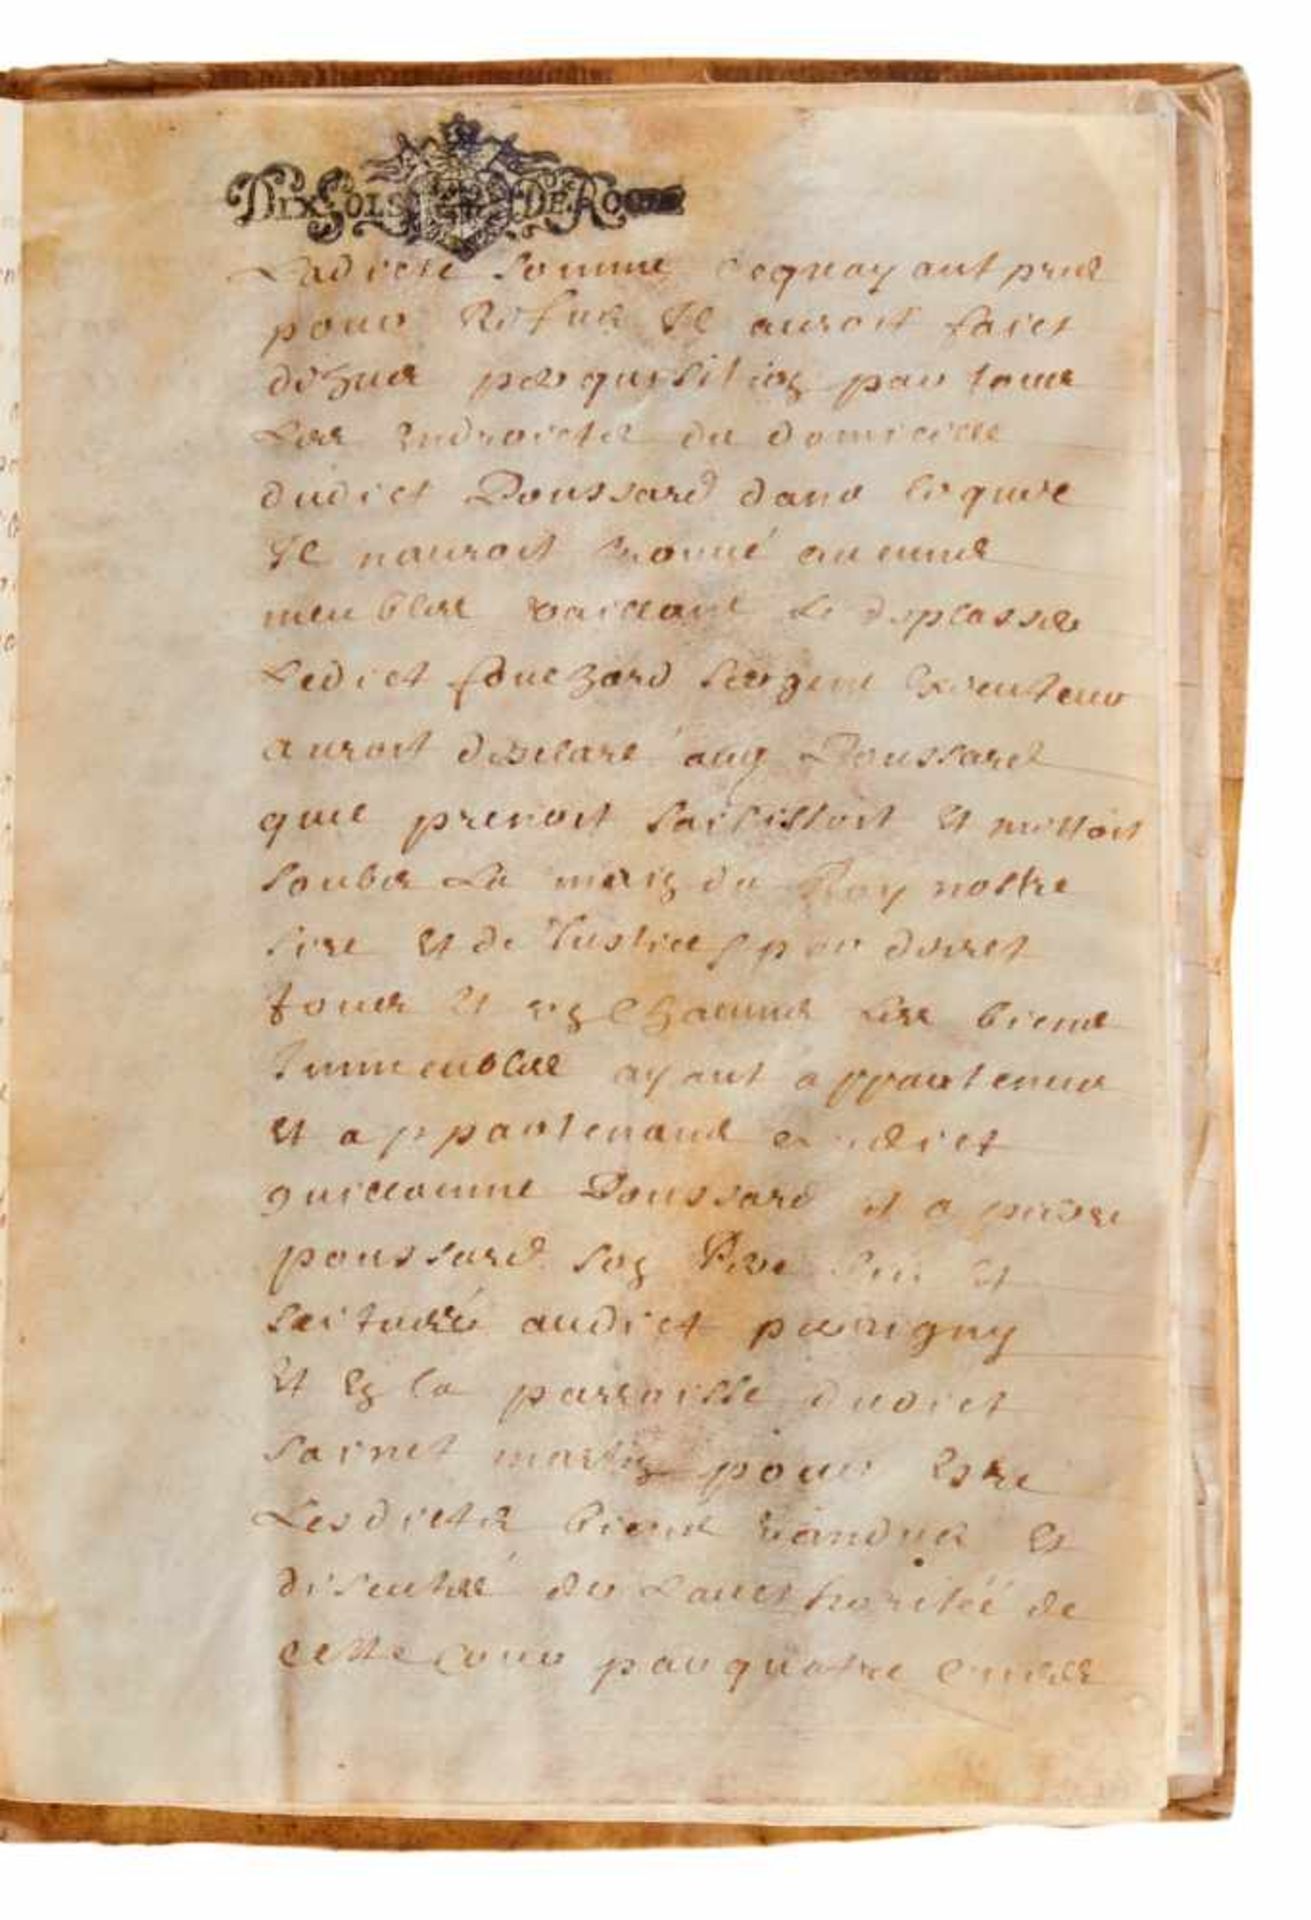 Dix Sols De Ro
Ladicte somme cequayant pris
pour Refus Il auroit faict
dhues perquisition par tous
Les Endroictz du domicille
dudict Poussard dans lequel
Il nauroit trouué aucuns
meubles vaillant Le desplasser
Ledict fouchard sergent Executeur
auroit desclaré aux Poussard
quil prenoit saisissoit Et mettoit
soubz La main du Roy nostre
sire Et de Justice par decret
tous Et ung chacuns Les biens
Immeubles ayant appartenus
Et appartenans audict
guillaume Poussard et a pierre
poussard son Pere sis Et
scituéés audict perrigny
Et En la parroisse dudict
sainct martin pour Estre
Lesdictz biens vandus Et
discutés de Lauthoritéé de
cette Cour par quatre criees